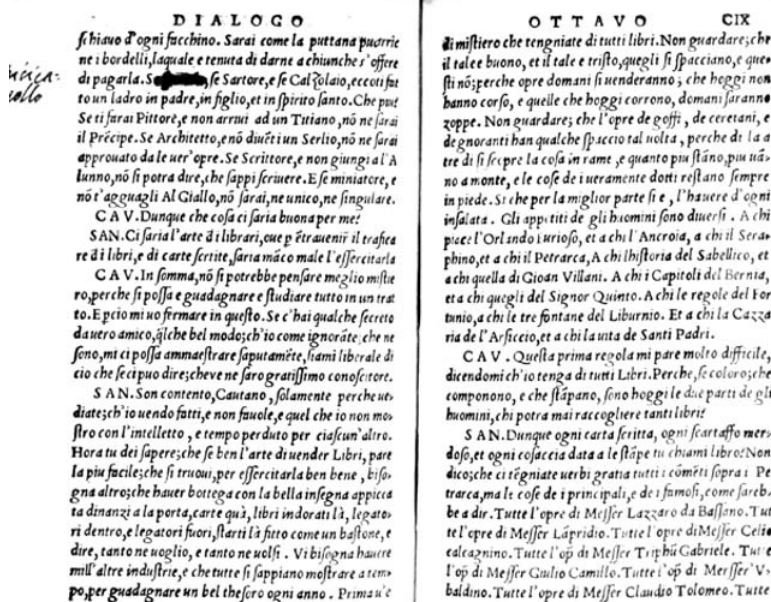 DIALOGO
schiavo d'ogni facchino. Sarai come la puttana
ne i bordelli, laquale e tenuta di darne a chiunche s'offere
di pagarla. S se Sartore, e se Calzolaio, eccoti fat
to un ladro in padre, in figlio, et in spirito santo. Che
Se ti farai Pittore, e non arrivi ad un Titiano, nõ ne sarai
il Prẽcipe. Se Architetto, e nõ divẽti un Serlio, nõ ne sarai
approuato da le uer'opre. Se Scrittore, e non giungi a l'A
lunno, nõ si potra dire, che sappi scriuere. E se miniatore, e
nõ t'agguagli Al Giallo, nõ sarai, ne unico, ne singulare.
CAV. Dunque che cosa ci saria buona per me?
SAN. Ci saria l'arte d i librari, oue p ẽtrauenir il trafica
re d i libri, e di carte scritte, saria mãco male l'essercitarla
CAV. In somma, nõ si potrebbe pensare meglio mistie
ro, perche si possa e guadagnare e studiare tutto in un trat
to. E pcio mi uo fermare in questo. Se c'hai qualche secreto
da uero amico, q̃lche bel modo; ch'io come ignorãte; che ne
sono, mi ci possa ammaestrare saputamẽte, siami liberale di
cio che se ci puo dire; che ve ne saro gratissimo conoscitore.
SAN. Son contento, Cautano, solamente perche ue
diate; ch'io uendo fatti, e non fauole, e quel che io non mo
stro con l'intelletto, e tempo perduto per ciascun'altro.
Hora tu dei sapere; che se ben l'arte di uender Libri, pare
la piu facile; che si truoui, per essercitarla ben bene, biso
gna altro; che hauer bottega con la bella insegna appicca
ta dinanzi a la porta, carte quà, libri indorati là, legato
ri dentro, e legatori fuori, starti là fitto come un bastone, e
dire, tanto ne uoglio, e tanto ne uolsi. Vi bisogna hauere
mill'altre industrie, e che tutte si sappiano mostrare a tem
po, per guadagnare un bel thesoro ogni anno. Prima u'è
OTTAVO CIX
di mistiero che tengniate di tutti libri. Non guardare; che
il tale e buono, et il tale e tristo, quegli si spacciano, e que
sti nõ; perche opre domani si uenderanno; che hoggi non
hanno corso, e quelle che hoggi corrono, domani saranno
zoppe. Non guardare; che l'opre de goffi, de ceretani, e
de gnoranti han qualche spaccio tal uolta, perche di la a
tre di si scopre la cosa in rame, e quanto piu stãno, piu uã
no a monte, e le cose de i ueramente dotti restano sempre
in piede. Si che per la miglior parte si e, l'hauere d'ogni
insalata. Gli appetiti de gli huomini sono diuersi. A chi
piace l'Orlando furioso, et a chi l'Ancroia, a chi il Sera
phino, et a chi il Petrarca, A chi lhistoria del Sabellico, et
a chi quella di Gioan Villani. A chi i Capitoli del Bernia,
et a chi quegli del Signor Quinto. A chi le regole del For
tunio, a chi le tre fontane del Liburnio. Et a chi la Cazza
ria de l'Arsiccio, et a chi la uita de Santi Padri.
CAV. Questa prima regola mi pare molto difficile,
dicendomi ch'io tenga di tutti Libri. Perche, se coloro; che
componono, e che stãpano, sono hoggi le due parti de gli
huomini, chi potra mai raccogliere tanti libri?
SAN. Dunque ogni carta scritta, ogni scartaffo mer
doso, et ogni cosaccia data a le stãpe tu chiami libro? Non
dico; che ci tẽgniate uerbi gratia tutti i comẽti sopra i Pe
trarca, ma le cose de i principali, e de i famosi, come sareb
be a dir. Tutte l'opre di Messer Lazzaro da Bassano. Tut
te l'opre di Messer Lãpridio. Tutte l'opre di Messer Celio
calcagnino. Tutte l'op̃ di Messer Triphũ Gabriele. Tutte
l'op̃ di Messer Giulio Camillo. Tutte l'op̃ di Mersser V
baldino. Tutte l'opre di Messer Claudio Tolomeo. Tutte